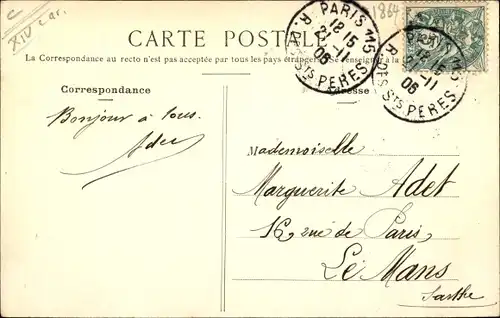 C
XIV ar.
1864
CARTE POSTALE
La Correspondance au recto n'est pas acceptée par tous les pays étrangers. Se renseigner à la
Correspondance
Adresse
PARIS 115
18 15
21-11
06
R. DES Sts PERES
PARIS 115
18 15
21-11
06
R. DES Sts PERES
Bonjour à tous.
Ader
Mademoiselle
Marguerite Adet
16, rue de Paris
Le Mans
Sarthe